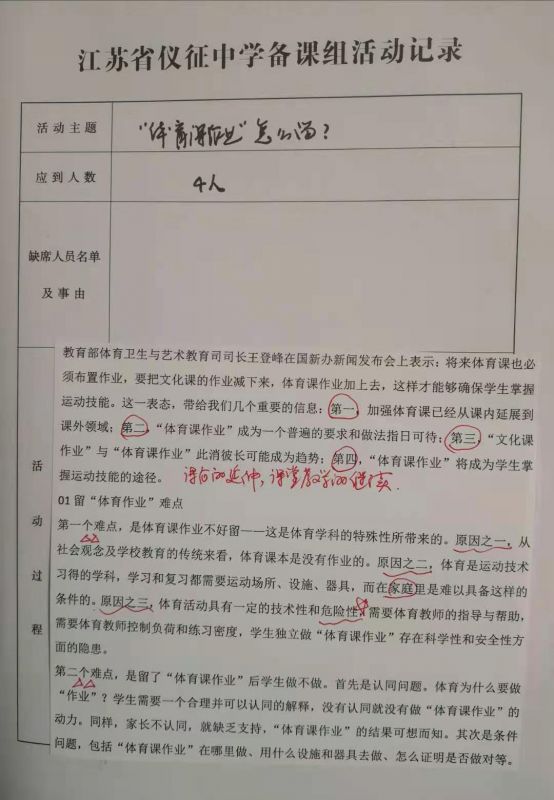 江苏省仪征中学备课组活动记录
活动主题
“体育课作业”怎么留？
应到人数
4人
缺席人员名单
及事由
活动过程
教育部体育卫生与艺术教育司司长王登峰在国新办新闻发布会上表示：将来体育课也必
须布置作业，要把文化课的作业减下来，体育课作业加上去，这样才能够确保学生掌握
运动技能。这一表态，带给我们几个重要的信息：第一，加强体育课已经从课内延展到
课外领域；第二，“体育课作业”成为一个普遍的要求和做法指日可待；第三，“文化课
作业”与“体育课作业”此消彼长可能成为趋势；第四，“体育课作业”将成为学生掌
握运动技能的途径。
课后的延伸，课堂教学的继续
01 留“体育作业”难点
第一个难点，是体育课作业不好留——这是体育学科的特殊性所带来的。原因之一，从
社会观念及学校教育的传统来看，体育课本是没有作业的。原因之二，体育是运动技术
习得的学科，学习和复习都需要运动场所、设施、器具，而在家庭里是难以具备这样的
条件的。原因之三，体育活动具有一定的技术性和危险性，需要体育教师的指导与帮助，
需要体育教师控制负荷和练习密度，学生独立做“体育课作业”存在科学性和安全性方
面的隐患。
第二个难点，是留了“体育课作业”后学生做不做。首先是认同问题。体育为什么要做
“作业”？学生需要一个合理并可以认同的解释，没有认同就没有做“体育课作业”的
动力。同样，家长不认同，就缺乏支持，“体育课作业”的结果可想而知。其次是条件
问题，包括“体育课作业”在哪里做、用什么设施和器具去做、怎么证明是否做对等。